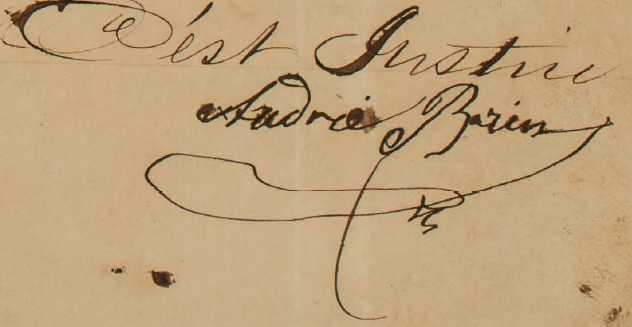 C'est Justice
André Barin